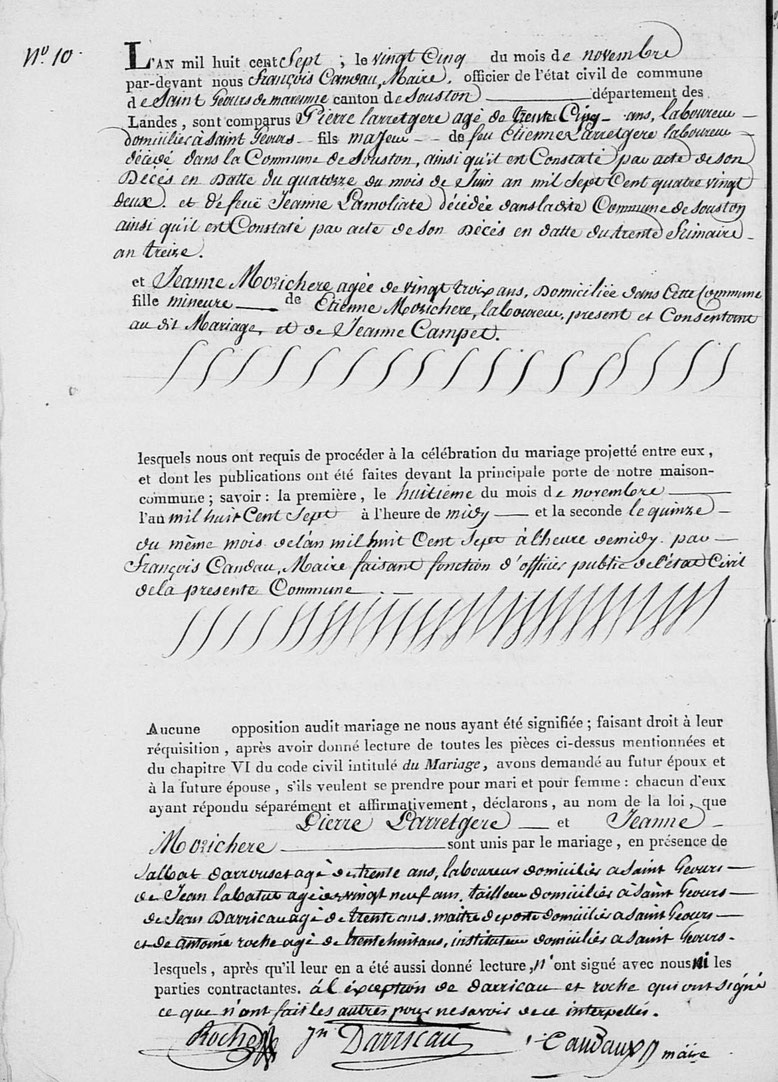 N.º 10.
L'AN mil huit cent Sept ; le vingt Cinq du mois de novembre
par-devant nous François Candau, Maire, officier de l'état civil de commune
de Saint Geours de maremne canton de Souston département des
Landes, sont comparus Pierre Larretgere agé de trente Cinq ans, laboureur
domiciliés à Saint Geours fils majeur de feu Etienne Larretgere laboureur
décédé dans la Commune de Souston, ainsi qu'il est Constaté par acte de son
Décès en Datte du quatorze du mois de Juin an mil Sept Cent quatre vingt
deux. et de feue Jeanne Lamoliate décédée dans la dite Commune de souston
ainsi qu'il est Constaté par acte de son Décès en datte du trente frimaire
an treize.
et Jeanne Morichere agée de vingt troix ans, Domiciliée dans Cette Commune
fille mineure de Etienne Morichere, laboureur, present et Consentant
au dit Mariage, et de Jeanne Campet.
lesquels nous ont requis de procéder à la célébration du mariage projetté entre eux,
et dont les publications ont été faites devant la principale porte de notre maison-
commune ; savoir : la première, le huitieme du mois de novembre
l'an mil huit Cent Sept à l'heure de midy et la seconde le quinze
du même mois de l'an mil huit Cent Sept à l'heure de midy. par
François Candau, Maire faisant fonction d'officier public de l'état Civil
de la presente Commune
Aucune opposition audit mariage ne nous ayant été signifiée ; faisant droit à leur
réquisition, après avoir donné lecture de toutes les pièces ci-dessus mentionnées et
du chapitre VI du code civil intitulé du Mariage, avons demandé au futur époux et
à la future épouse, s'ils veulent se prendre pour mari et pour femme : chacun d'eux
ayant répondu séparément et affirmativement, déclarons, au nom de la loi, que
Pierre Larretgere et Jeanne
Morichere sont unis par le mariage, en présence de
Salbat darrouset agé de trente ans, laboureur domiciliés a Saint Geours
de Jean labatut agé de vingt neuf ans. tailleur domiciliés a Saint Geours
de Jean Darricau agé de trente ans. maitre de poste domiciliés a Saint Geours
et de antoine roche agé de trente huit ans, instituteur domiciliés a Saint Geours.
lesquels, après qu'il leur en a été aussi donné lecture, n'ont signé avec nous ni les
parties contractantes. à l'exception de darricau et roche qui ont signé
ce que n'ont fait les autres pour ne savoir de ce interpellés.
Roche Jn Darricau Candau maire